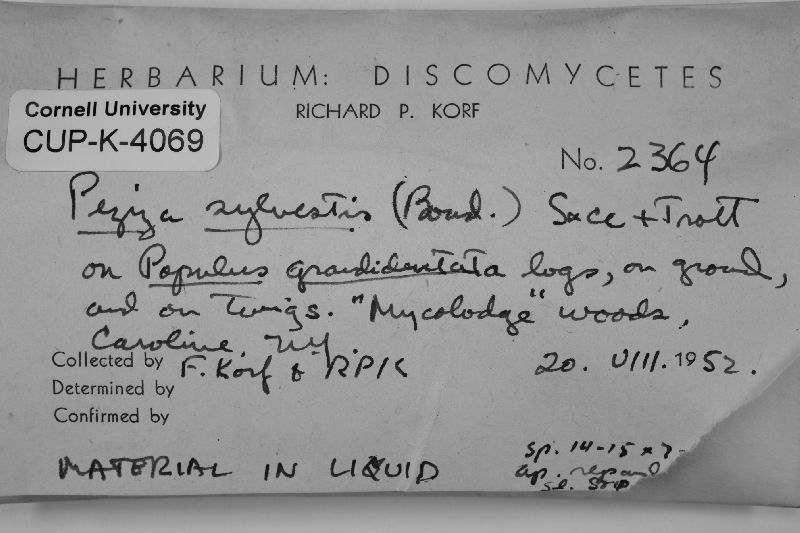 HERBARIUM: DISCOMYCETES
RICHARD P. KORF
Cornell University
CUP-K-4069
No. 2364
Peziza sylvestris (Boud.) Sacc + Trott
on Populus grandidentata logs, on ground,
and on twigs. "Mycolodge" woods,
Caroline, NY.
Collected by F. Korf & RPK 20. VIII. 1952.
Determined by
Confirmed by
MATERIAL IN LIQUID
sp. 14-15 x 7-
ap.
sl.